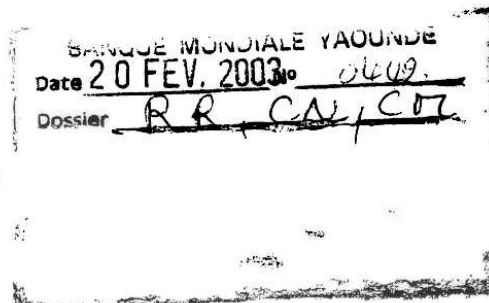 BANQUE MONDIALE YAOUNDE
Date 20 FEV. 2003 No
Dossier RR, CN, COM